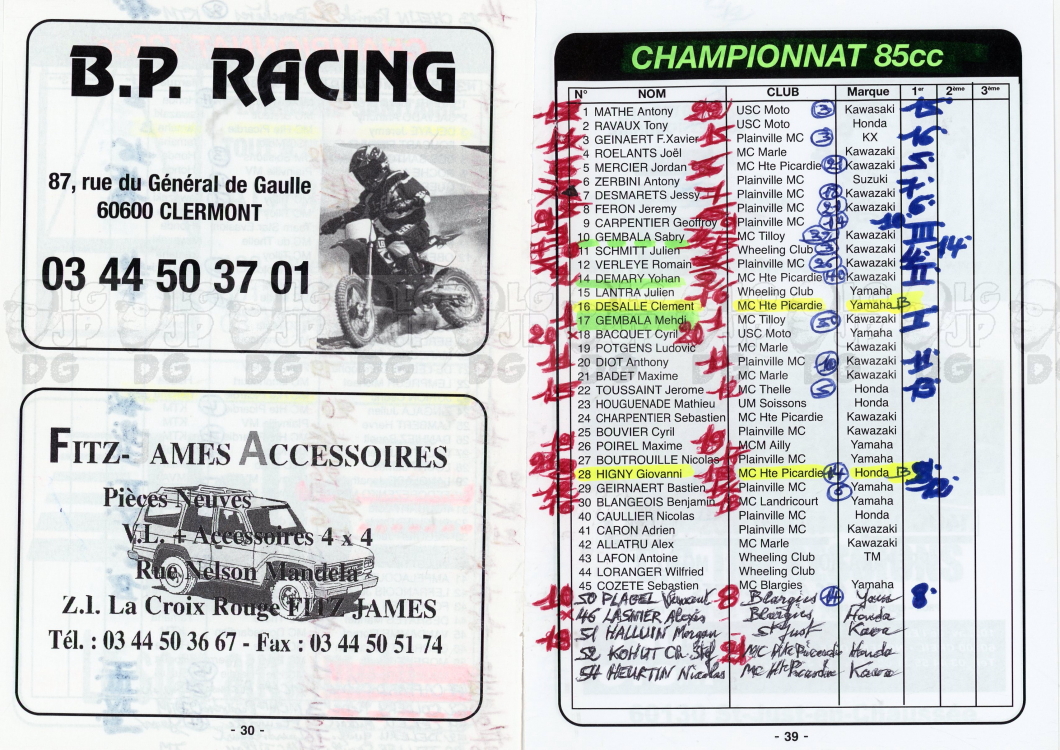 B.P. RACING
87, rue du Général de Gaulle
60600 CLERMONT
03 44 50 37 01
FITZ- AMES ACCESSOIRES
Pièces Neuves
V.L. + Accessoires 4 x 4
Rue Nelson Mandela
Z.I. La Croix Rouge FITZ JAMES
Tél. : 03 44 50 36 67 - Fax : 03 44 50 51 74
- 30 -
CHAMPIONNAT 85cc
N° NOM CLUB Marque 1er 2ème 3ème
1 MATHE Antony USC Moto 3 Kawasaki
2 RAVAUX Tony USC Moto Honda
3 GEINAERT F.Xavier Plainville MC 3 KX 16
4 ROELANTS Joël MC Marle Kawazaki
5 MERCIER Jordan MC Hte Picardie Kawazaki
6 ZERBINI Antony Plainville MC Suzuki
7 DESMARETS Jessy Plainville MC Kawazaki
8 FERON Jeremy Plainville MC Kawazaki
9 CARPENTIER Geoffroy Plainville MC
10 GEMBALA Sabry MC Tilloy Kawazaki III
11 SCHMITT Julien Wheeling Club Kawazaki 14
12 VERLEYE Romain Plainville MC Kawazaki
14 DEMARY Yohan MC Hte Picardie Kawazaki II
15 LANTRA Julien Wheeling Club Yamaha
16 DESALLE Clement MC Hte Picardie Yamaha B
17 GEMBALA Mehdi MC Tilloy Kawazaki I
18 BACQUET Cyril 20 USC Moto Yamaha
19 POTGENS Ludovic MC Marle Kawazaki
20 DIOT Anthony Plainville MC Kawazaki 11
21 BADET Maxime MC Marle Kawazaki
22 TOUSSAINT Jerome MC Thelle 5 Honda
23 HOUGUENADE Mathieu UM Soissons Honda
24 CHARPENTIER Sebastien MC Hte Picardie Kawazaki
25 BOUVIER Cyril Kawazaki
26 POIREL Maxime MCM Ailly Yamaha
27 BOUTROUILLE Nicolas Plainville MC Yamaha
28 HIGNY Giovanni MC Hte Picardie 14 Honda B
29 GEIRNAERT Bastien Plainville MC Yamaha
30 BLANGEOIS Benjamin MC Landricourt Yamaha
40 CAULLIER Nicolas Plainville MC Honda
41 CARON Adrien Plainville MC Kawazaki
42 ALLATRU Alex MC Marle Kawazaki
43 LAFON Antoine Wheeling Club TM
44 LORANGER Wilfried Wheeling Club
45 COZETE Sebastien MC Blargies Yamaha
50 PLAGEL 8 Blargies Yam 8
46 LASNIER Alexis Blargies Honda
51 HALLUIN Morgan St Just Kawa
52 KOHUT MC Hte Picardie Honda
54 HEURTIN Nicolas MC Hte Picardie Kawa
- 39 -